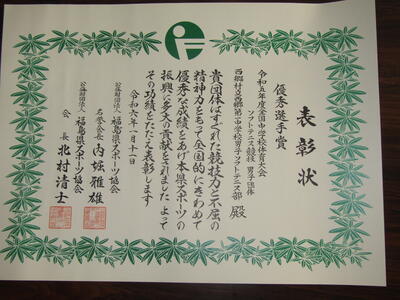 表彰状
優秀選手賞
令和五年度全国中学校体育大会
ソフトテニス競技 男子団体
西郷村立西郷第一中学校男子ソフトテニス部 殿
貴団体はすぐれた競技力と不屈の
精神力をもって全国的にきわめて
優秀な成績をあげ本県スポーツの
振興に多大の貢献をされました よって
その功績をたたえ表彰します
令和六年一月十一日
公益財団法人 福島県スポーツ協会
名誉会長 内堀雅雄
公益財団法人 福島県スポーツ協会
会長 北村清士